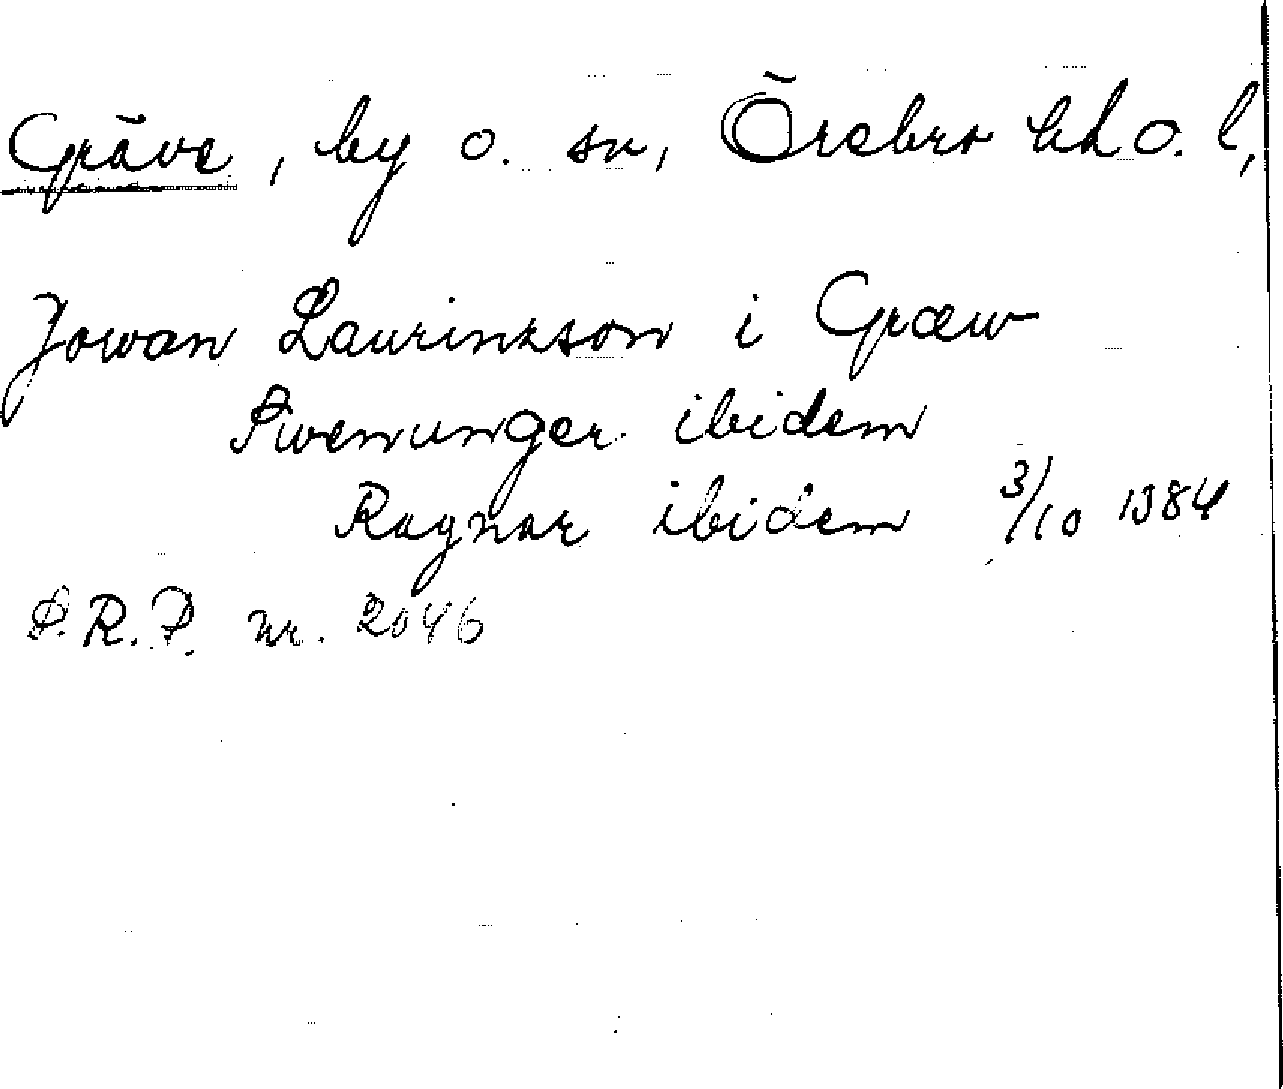 Gräve, by o. sn, Örebro hd o. l,
Jowan Laurinsson i Græw
Swenunger ibidem
Ragnar ibidem 3/10 1384
S.R.P. nr. 2046